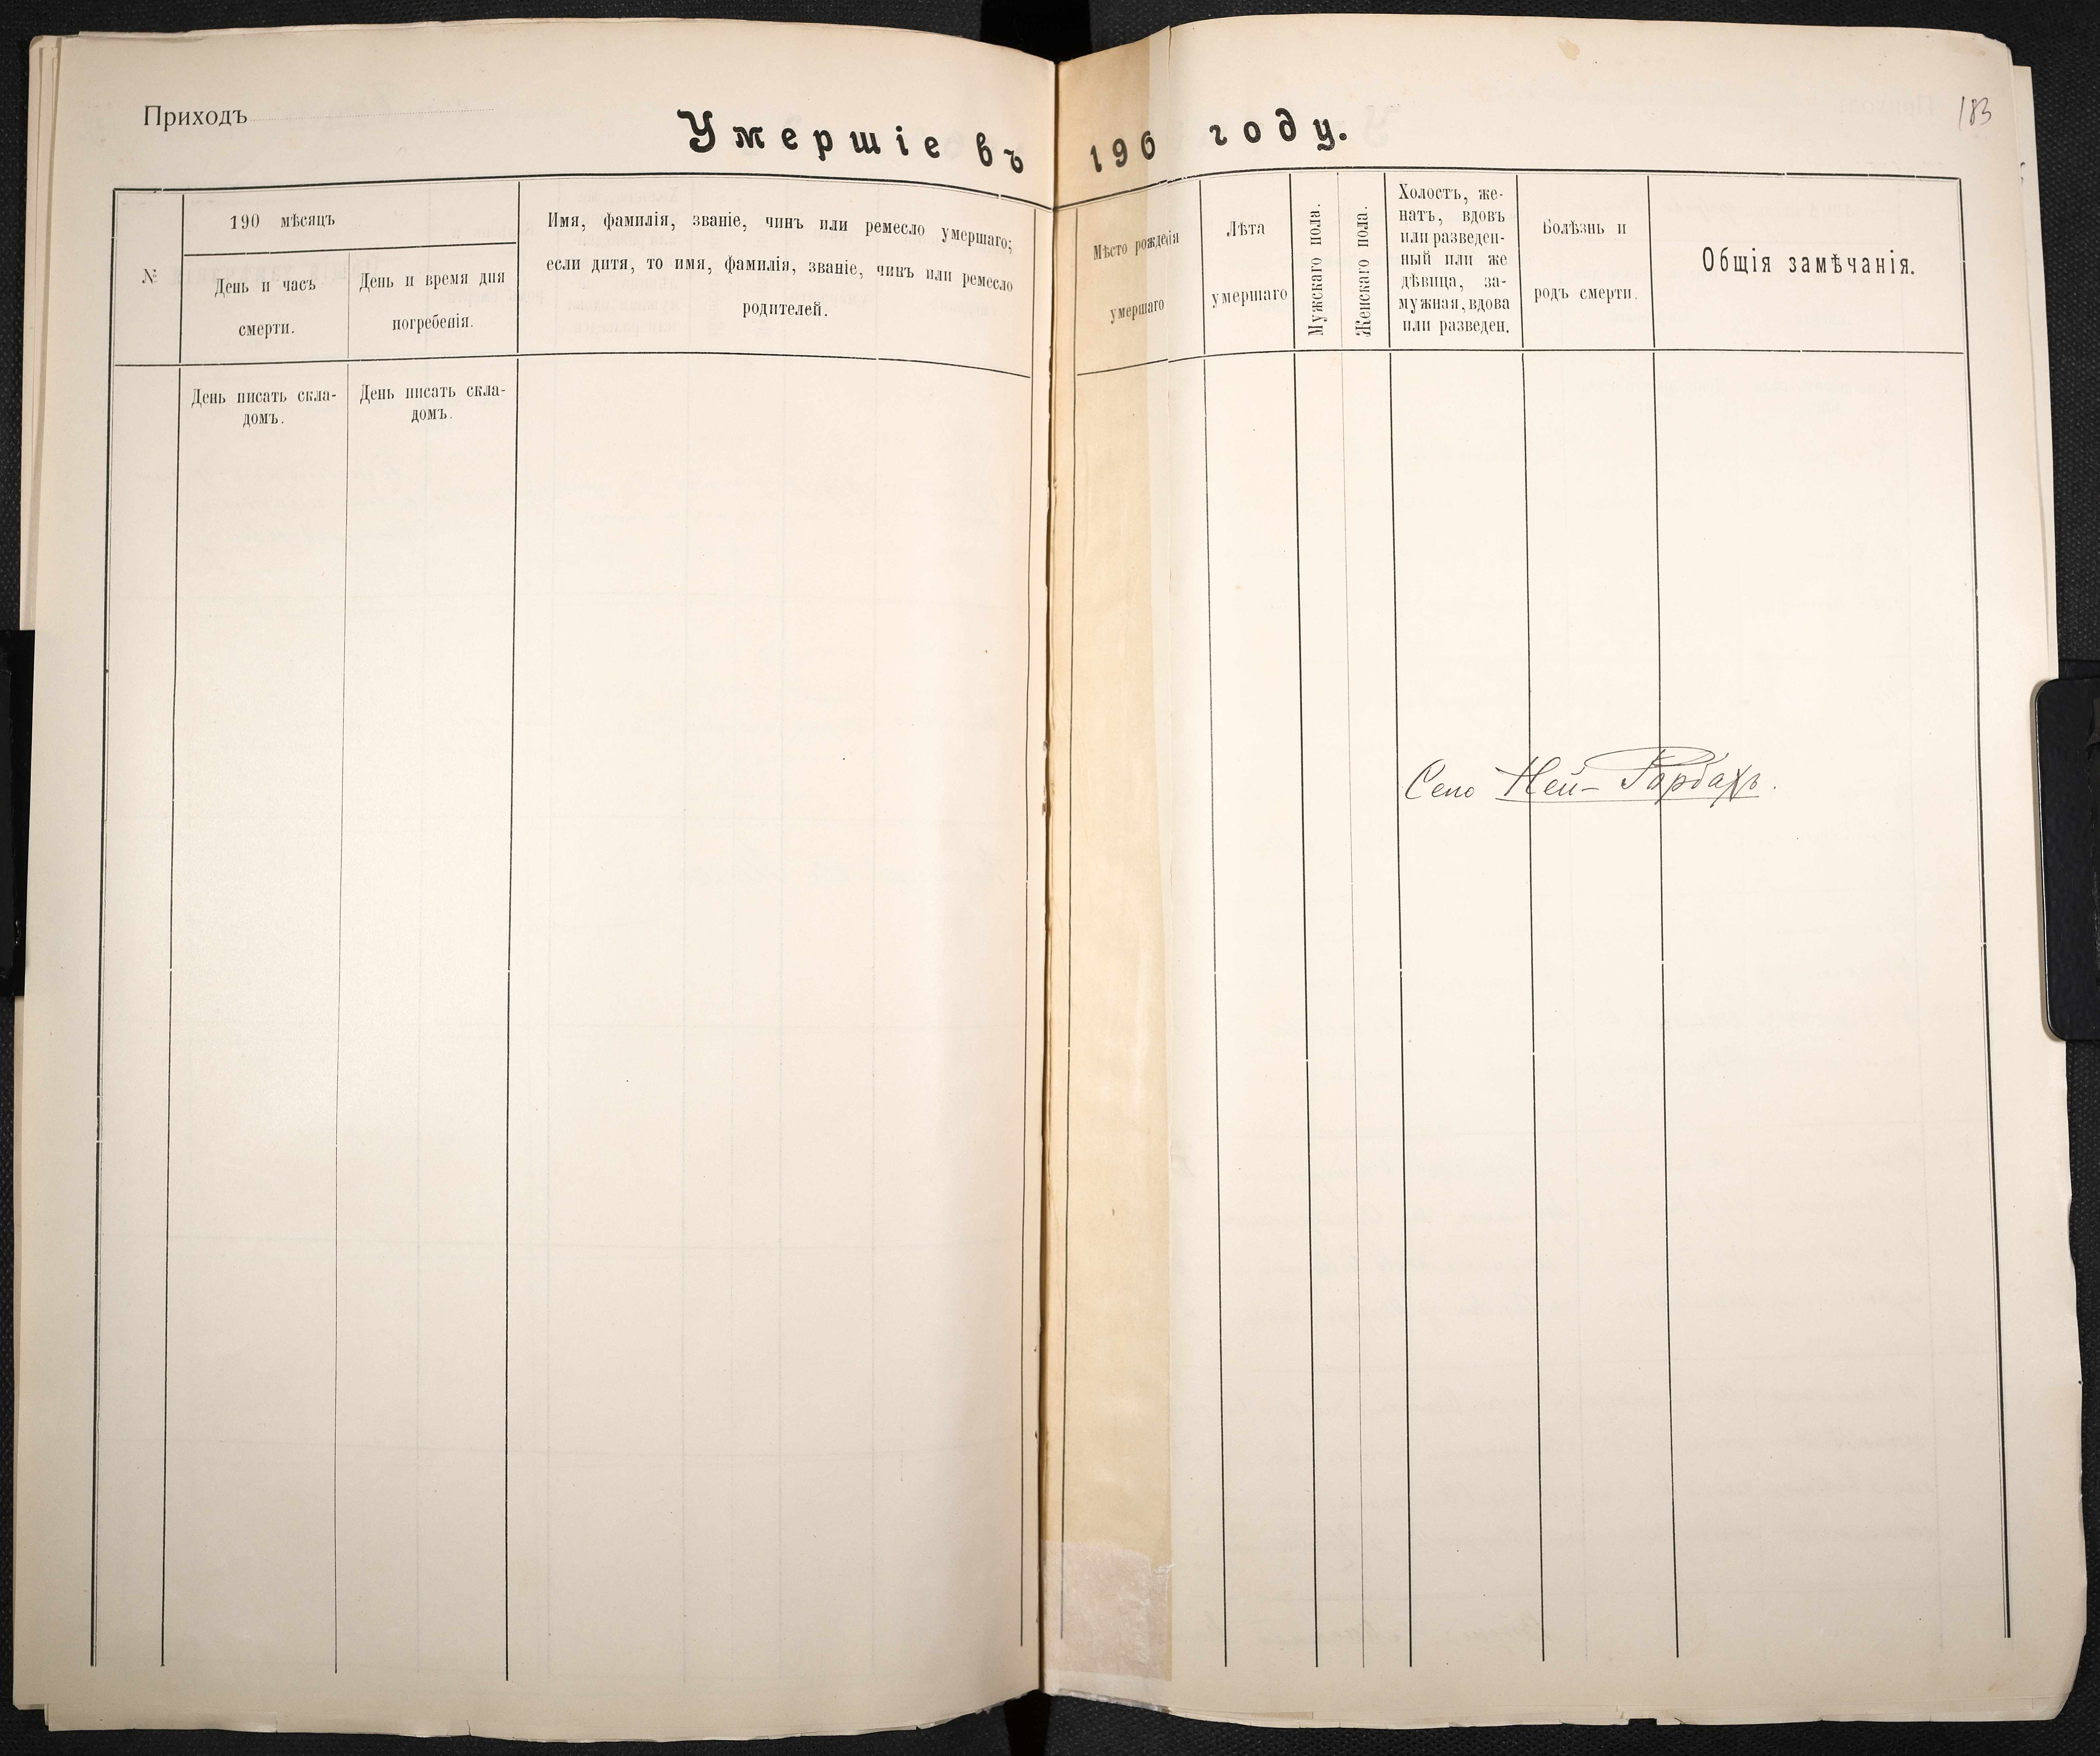 183
Приходъ
Умершіе въ 190 году.
№
190 мѣсяцъ
День и часъ
смерти.
День и время дня
погребенія.
Имя, фамилія, званіе, чинъ или ремесло умершаго;
если дитя, то имя, фамилія, званіе, чинъ или ремесло
родителей.
Мѣсто рожденія
умершаго
Лѣта
умершаго
Мужскаго пола.
Женскаго пола.
Холостъ, же-
натъ, вдовъ
или разведен-
ный или же
дѣвица, за-
мужная, вдова
или разведен.
Болѣзнь и
родъ смерти.
Общія замѣчанія.
День писать скла-
домъ.
День писать скла-
домъ.
Село Ней-Рорбахъ.